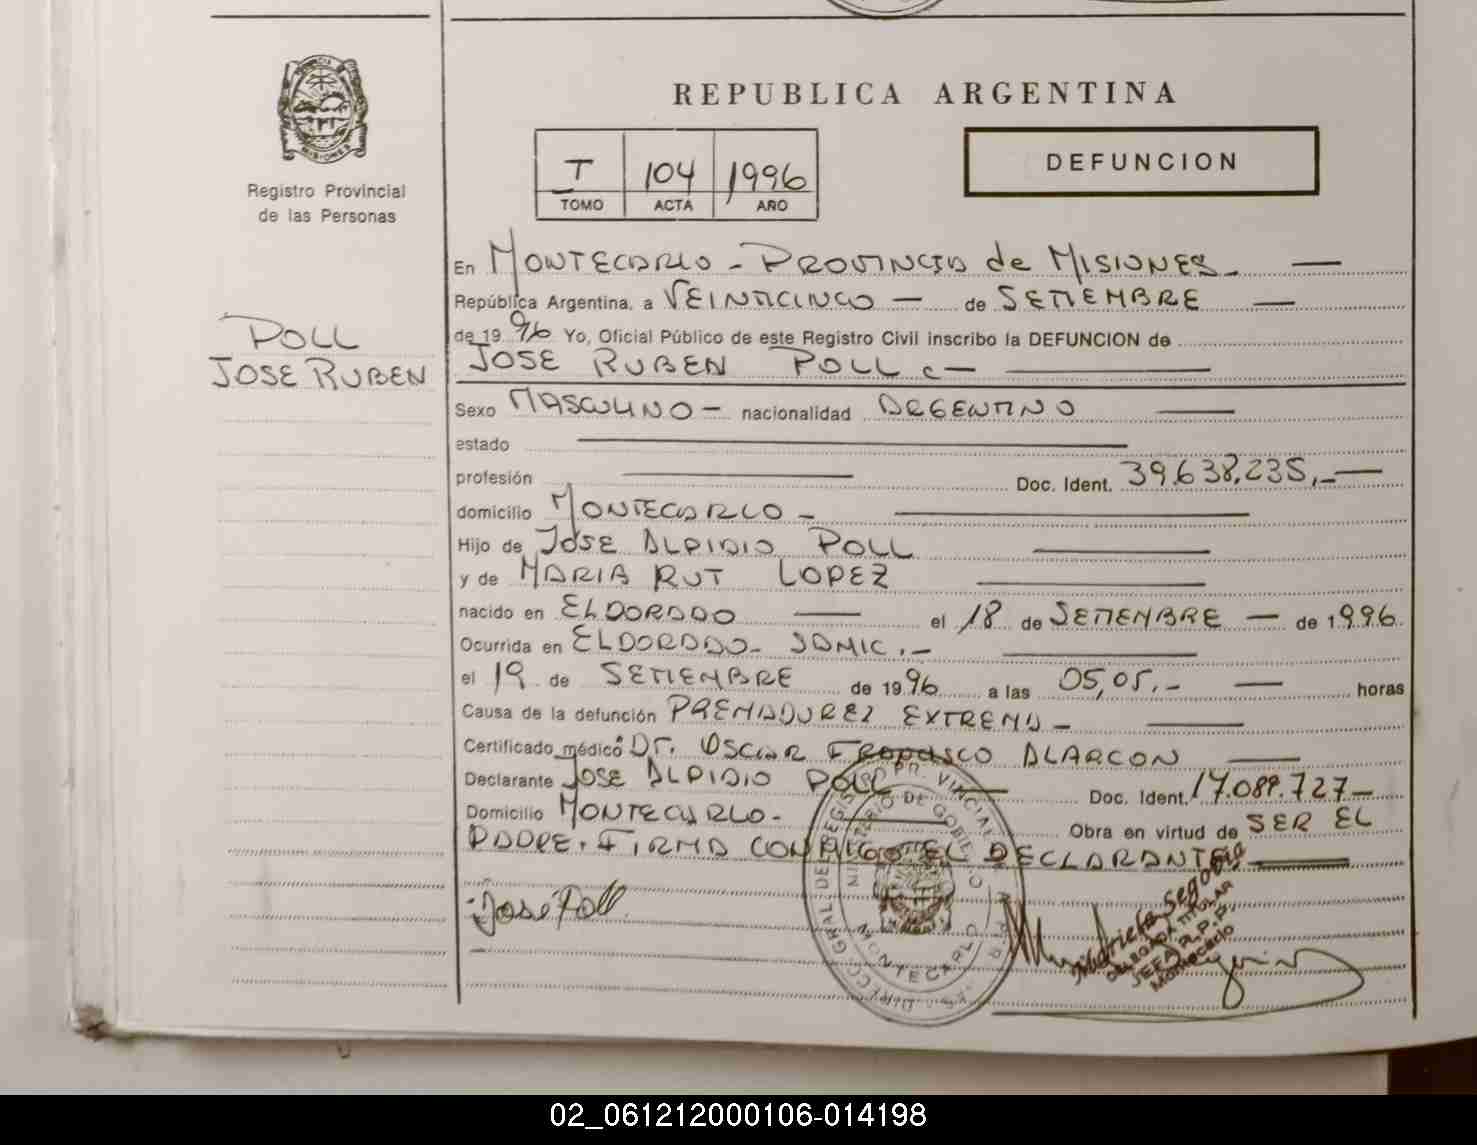 PROVINCIA DE
MISIONES
Registro Provincial
de las Personas
POLL
JOSE RUBEN
REPUBLICA ARGENTINA
T 104 1996
TOMO ACTA AÑO
DEFUNCION
En MONTECARLO - PROVINCIA de MISIONES -
República Argentina, a VEINTICINCO - de SETIEMBRE
de 1996 Yo, Oficial Público de este Registro Civil inscribo la DEFUNCION de
JOSE RUBEN POLL
Sexo MASCULINO - nacionalidad ARGENTINO
estado
profesión Doc. Ident. 39.638.235,-
domicilio MONTECARLO -
Hijo de JOSE ALPIDIO POLL
y de MARIA RUT LOPEZ
nacido en ELDORADO el 18 de SETIEMBRE - de 1996.
Ocurrida en ELDORADO - SAMIC.-
el 19 de SETIEMBRE de 1996 a las 05,05.- horas
Causa de la defunción PREMADUREZ EXTREMA -
Certificado médico Dr. OSCAR ALARCON
Declarante JOSE ALPIDIO POLL Doc. Ident. 17.089.727-
Domicilio MONTECARLO- Obra en virtud de SER EL
PADRE. FIRMA CONMIGO EL DECLARANTE
José Poll
DIRECC. GRAL. DE REGISTRO PROVINCIAL
MINISTERIO DE GOBIERNO
MONTECARLO
Segovia
DELEGADA TITULAR
R.P.P.
Montecarlo
02_061212000106-014198